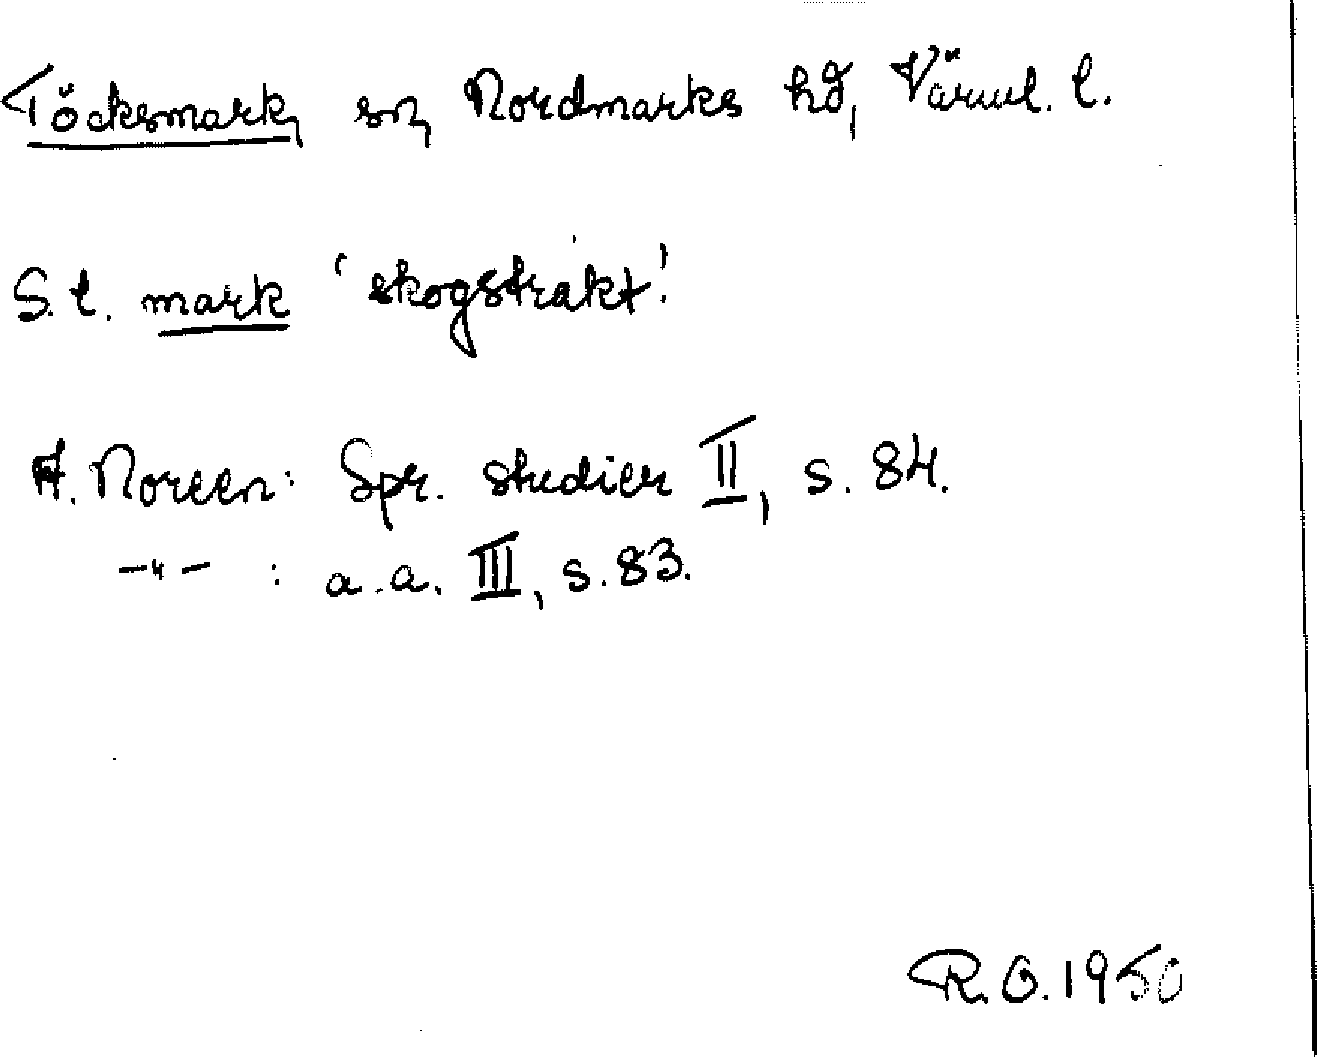 Töcksmark, sn, Nordmarks hd, Värml. l.
S. l. mark 'skogstrakt'.
A. Noreen: Spr. studier II, s. 84.
–"– : a. a. III, s. 83.
R. O. 1950